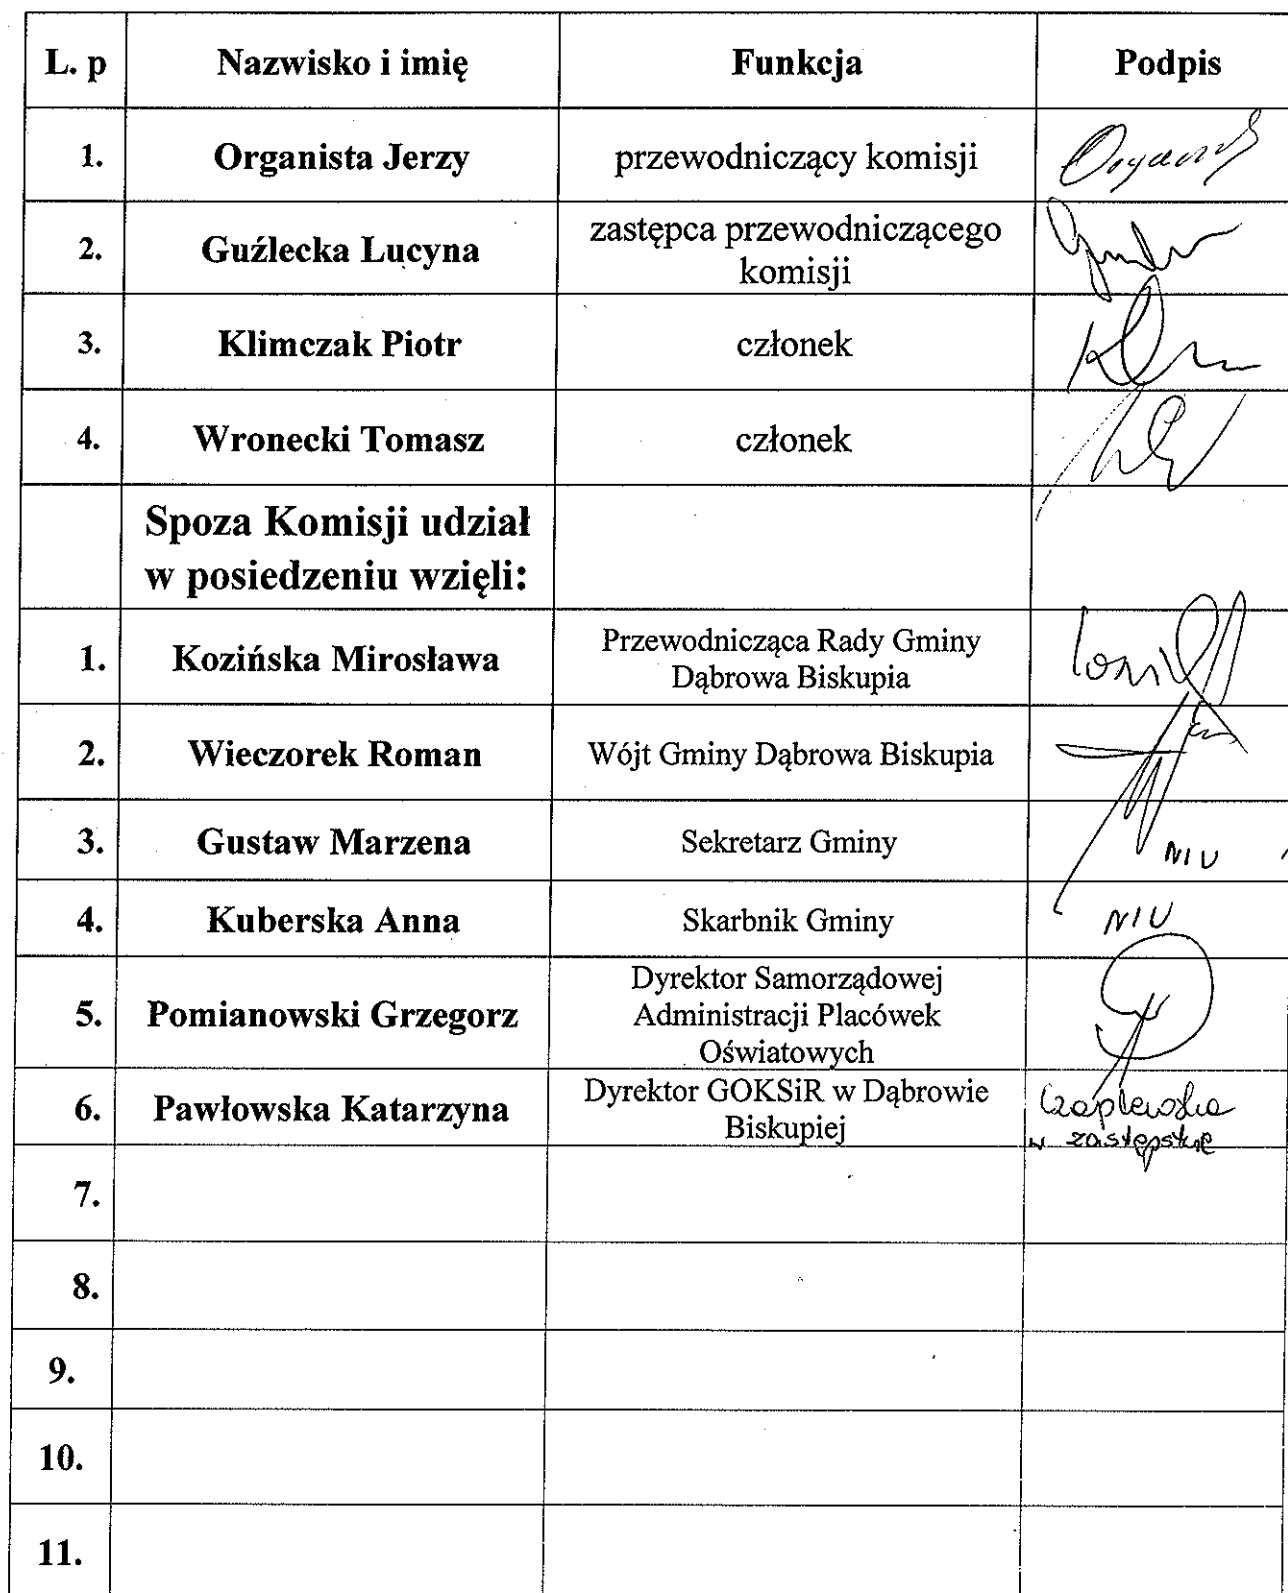 L. p Nazwisko i imię Funkcja Podpis
1. Organista Jerzy przewodniczący komisji
2. Guźlecka Lucyna zastępca przewodniczącego
komisji
3. Klimczak Piotr członek
4. Wronecki Tomasz członek
Spoza Komisji udział
w posiedzeniu wzięli:
1. Kozińska Mirosława Przewodnicząca Rady Gminy
Dąbrowa Biskupia
2. Wieczorek Roman Wójt Gminy Dąbrowa Biskupia
3. Gustaw Marzena Sekretarz Gminy NIU
4. Kuberska Anna Skarbnik Gminy NIU
5. Pomianowski Grzegorz Dyrektor Samorządowej
Administracji Placówek
Oświatowych
6. Pawłowska Katarzyna Dyrektor GOKSiR w Dąbrowie
Biskupiej
Czaplewska
w zastępstwie
7.
8.
9.
10.
11.